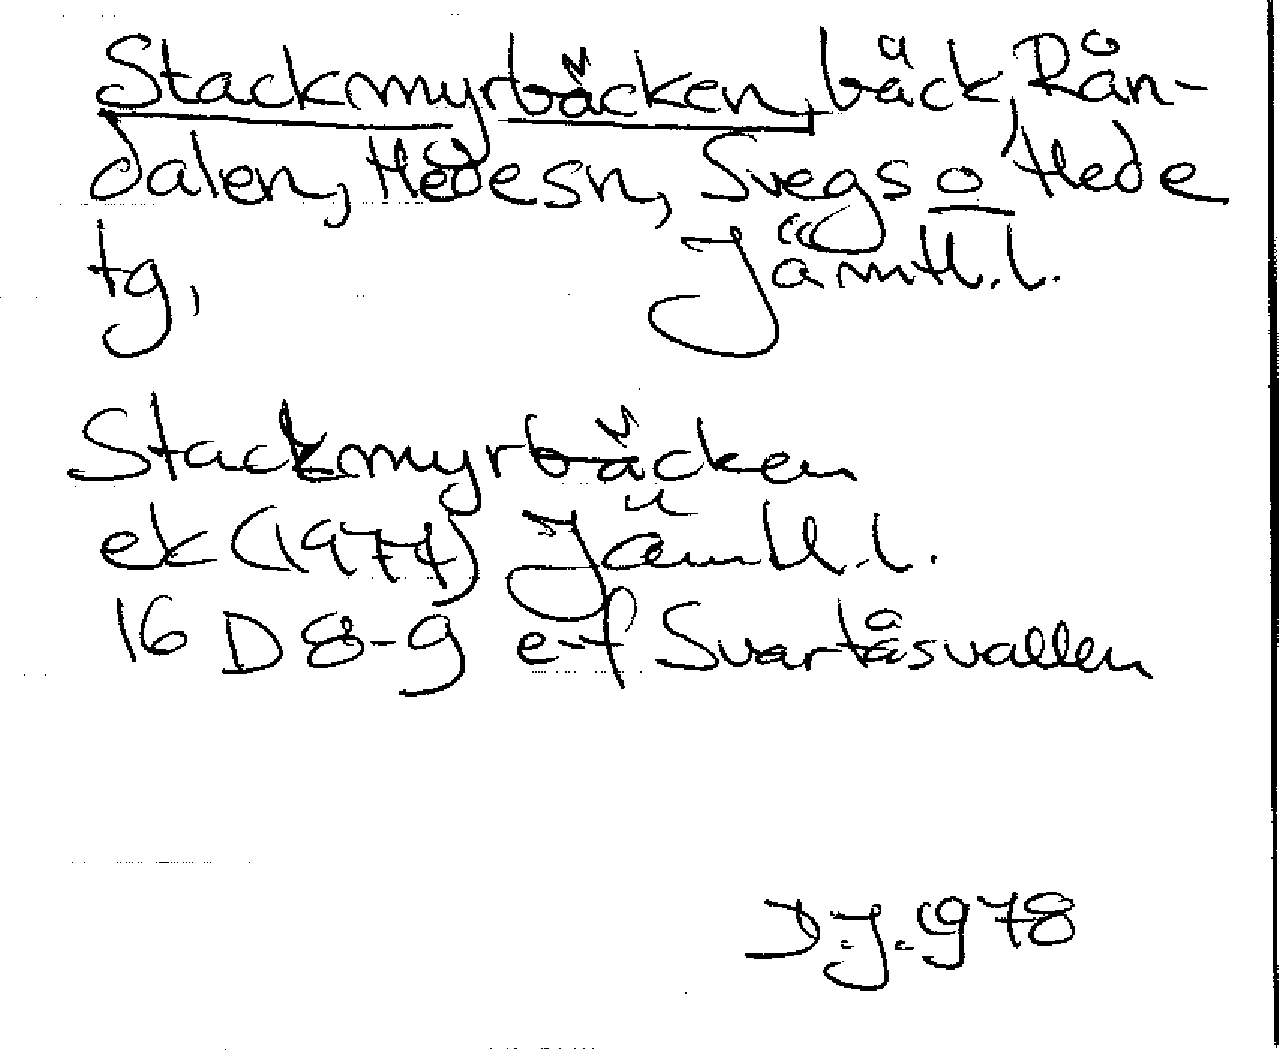 Stackmyrbäcken, bäck, Rån-
dalen, Hedesn, Svegs o Hede
tg, Jämtl.l.
Stackmyrbäcken
ek (1974) Jämtl.l.
16 D 8-9 e-f Svartåsvallen
D.J. 1978